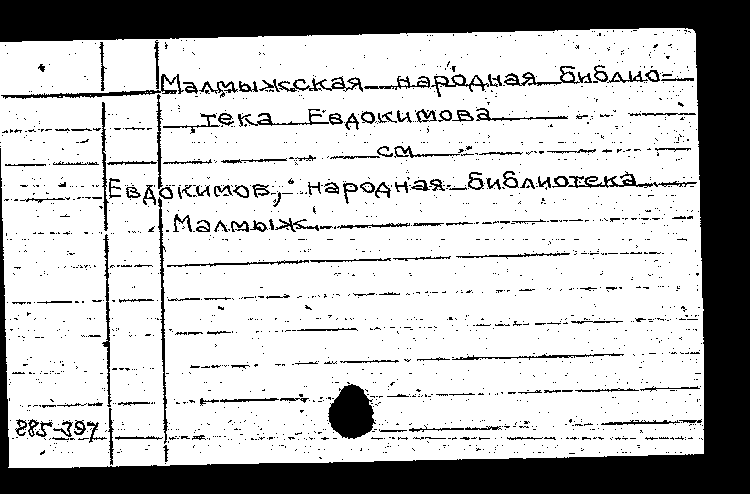 Малмыжская народная библио-
тека Евдокимова
см
Евдокимов, народная библиотека
Малмыж.
885-397